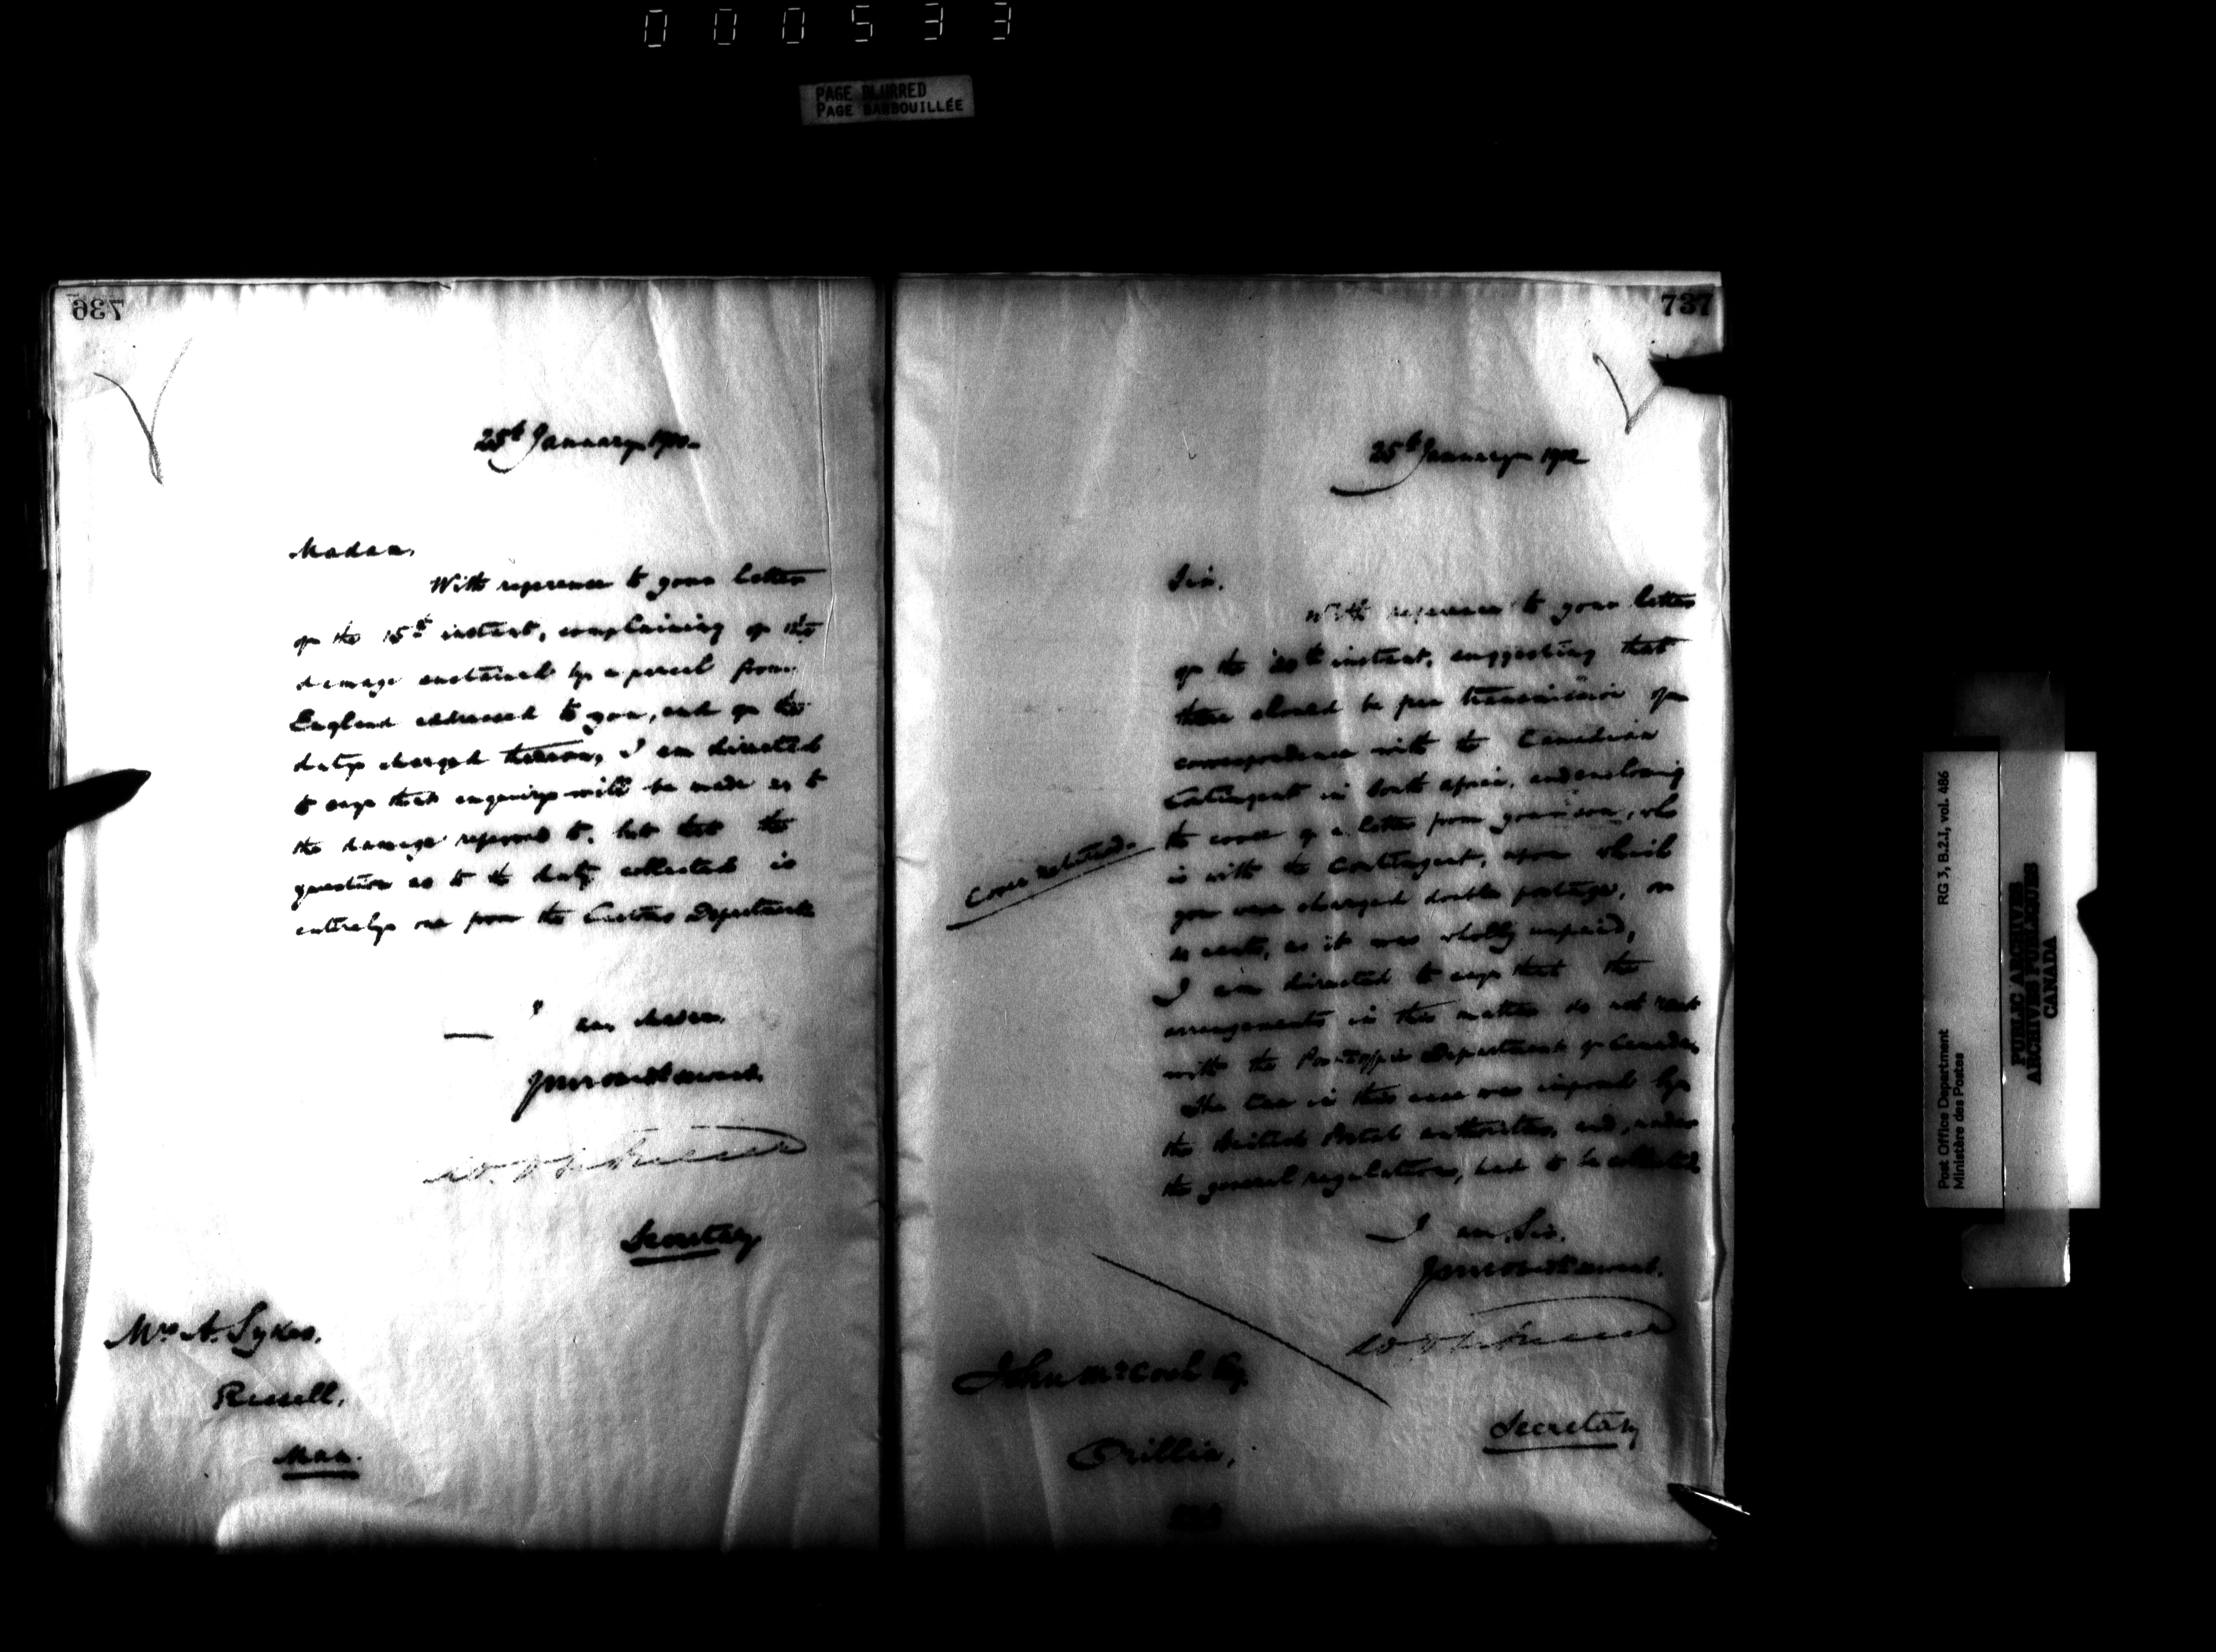 000533
PAGE BLURRED
PAGE BARBOUILLÉE
736
25th January 1900
Madam,
With reference to your letter
of the 15th instant, complaining of the
damage sustained by a parcel from
England addressed to you, and of the
duty charged thereon, I am directed
to say that enquiry will be made as to
the damage referred to, but that the
question as to the duty collected is
entirely one for the Customs Department
I am, Madam,
Your obedient servant,
Secretary
Mrs A. Sykes,
Russell,
Man.
737
25th January 1900
Sir,
With reference to your letter
of the 20th instant, suggesting that
there should be free transmission of
correspondence with the Canadian
Contingent in South Africa, and enclosing
the cover of a letter from your son, who
is with the Contingent, upon which
you were charged double postage, or
cents, as it was wholly unpaid,
I am directed to say that the
arrangements in this matter do not rest
with the Post Office Department of Canada.
The tax in this case was imposed by
the British Postal authorities, and, under
the general regulations, had to be collected
Cover returned.
I am, Sir,
Your obedient servant,
Secretary
John McCosh Esq.
Orillia,
Post Office Department
Ministère des Postes
RG 3, B.2.I, vol. 486
PUBLIC ARCHIVES
ARCHIVES PUBLIQUES
CANADA